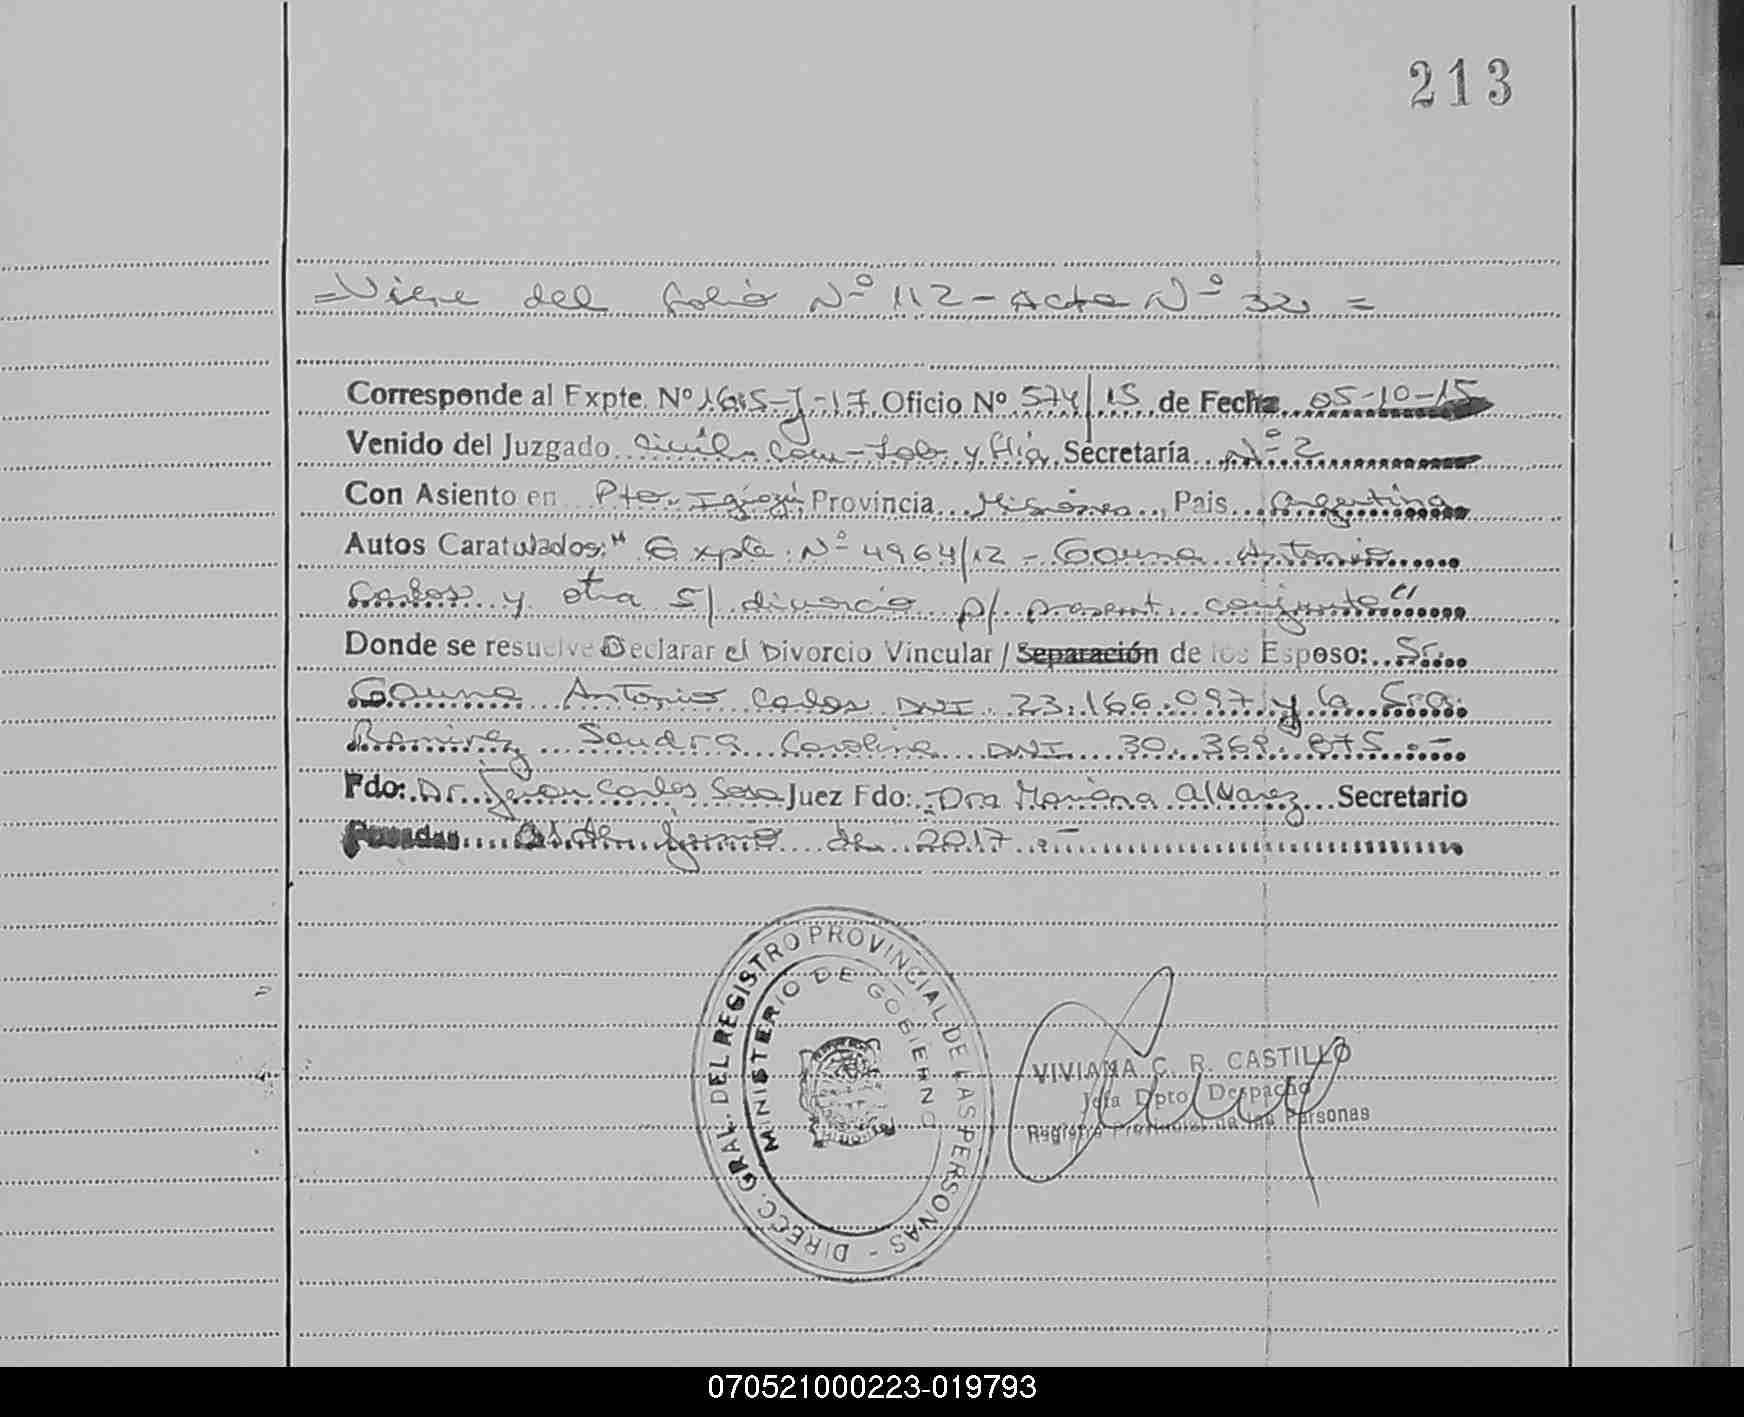 213
=Viene del folio Nº 112 - Acta Nº 32 =
Corresponde al Expte. Nº 1615-J-17 Oficio Nº 574/15 de Fecha 05-10-15
Venido del Juzgado Civil. Com-Lab y flia Secretaría Nº 2
Con Asiento en Pto. Iguazú Provincia Misiones, Pais Argentina
Autos Caratulados: "Expte. Nº 4964/12 - Gauna Antonio
Carlos y otra S/ divorcio p/ present. conjunta"
Donde se resuelve Declarar el Divorcio Vincular / Separación de los Esposo: Sr.
Gauna Antonio Carlos DNI. 23.166.097 y la Sra.
Ramirez Sandra Carolina DNI 30.369.875.-
Fdo: Dr. Juan Carlos Sosa Juez Fdo: Dra Mariana Alvarez Secretario
Posadas 01 de junio de 2017.-
DIRECC. GRAL. DEL REGISTRO PROVINCIAL DE LAS PERSONAS -
MINISTERIO DE GOBIERNO
VIVIANA C. R. CASTILLO
Jefa Dpto. Despacho
Registro Provincial de las Personas
070521000223-019793